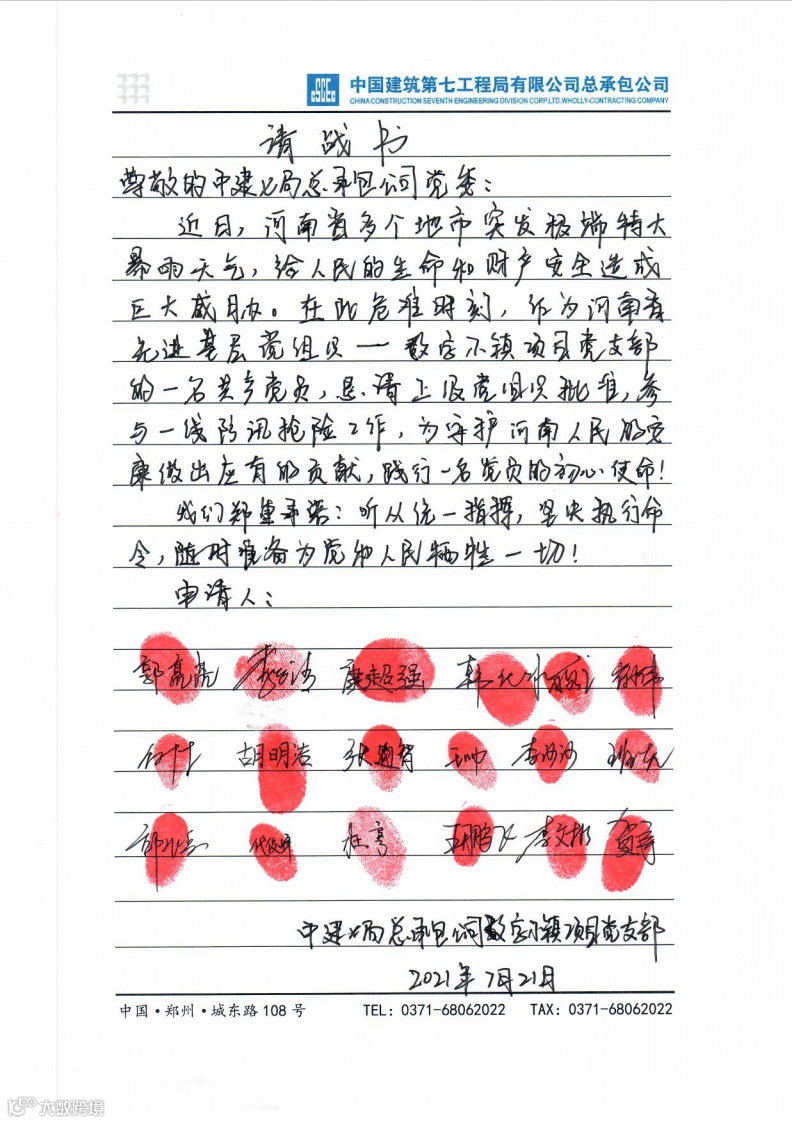 中国建筑第七工程局有限公司总承包公司
CHINA CONSTRUCTION SEVENTH ENGINEERING DIVISION CORP.LTD.WHOLLY-CONTRACTING COMPANY
请战书
尊敬的中建七局总承包公司党委：
近日，河南省多个地市突发极端特大
暴雨天气，给人民的生命和财产安全造成
巨大威胁。在此危难时刻，作为河南省
先进基层党组织——数字小镇项目党支部
的一名共产党员，恳请上级党组织批准，参
与一线防汛抢险工作，为守护河南人民的安
康做出应有的贡献，践行一名党员的初心使命！
我们郑重承诺：听从统一指挥，坚决执行命
令，随时准备为党和人民牺牲一切！
申请人：
郭亮亮 康超强
胡明浩 王帅 李沙沙
杜亨 王鹏飞 李文彬
中建七局总承包公司数字小镇项目党支部
2021年7月21日
中国·郑州·城东路108号 TEL：0371-68062022 TAX：0371-68062022
大数跨境